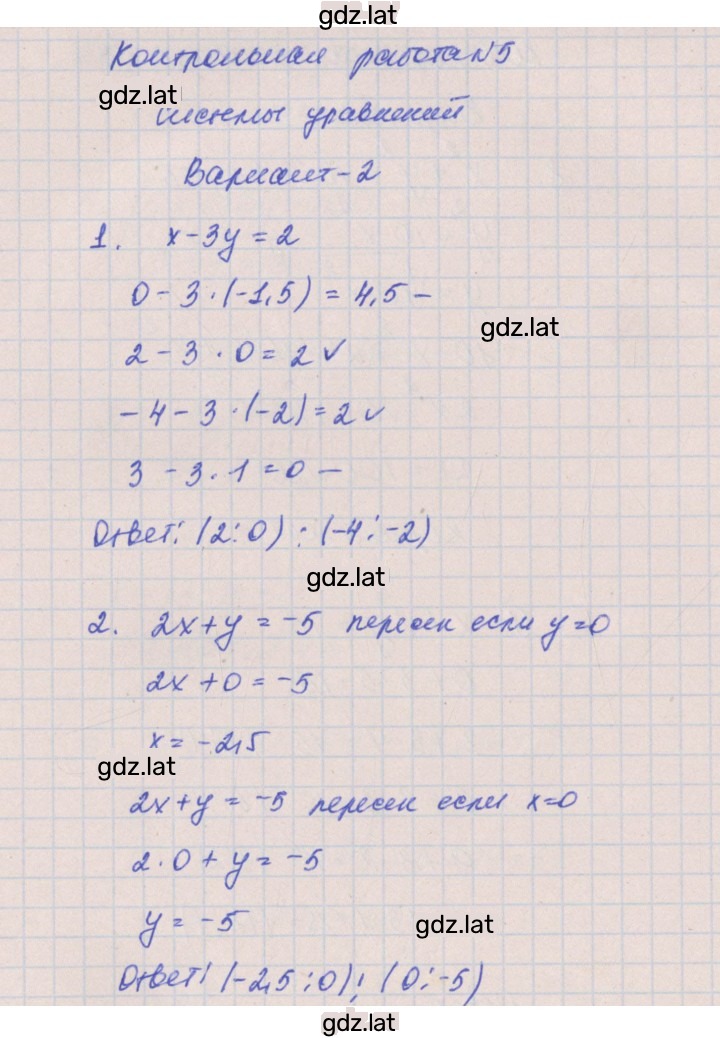 gdz.lat
Контрольная работа №5
gdz.lat
Системы уравнений
Вариант-2
1. x-3y=2
0-3·(-1,5)=4,5 -
gdz.lat
2-3·0=2 ✓
-4-3·(-2)=2 ✓
3-3·1=0 -
Ответ: (2;0) ; (-4;-2)
gdz.lat
2. 2x+y=-5 пересек если y=0
2x+0=-5
x=-2,5
gdz.lat
2x+y=-5 пересек если x=0
2·0+y=-5
y=-5
gdz.lat
Ответ: (-2,5;0); (0;-5)
gdz.lat